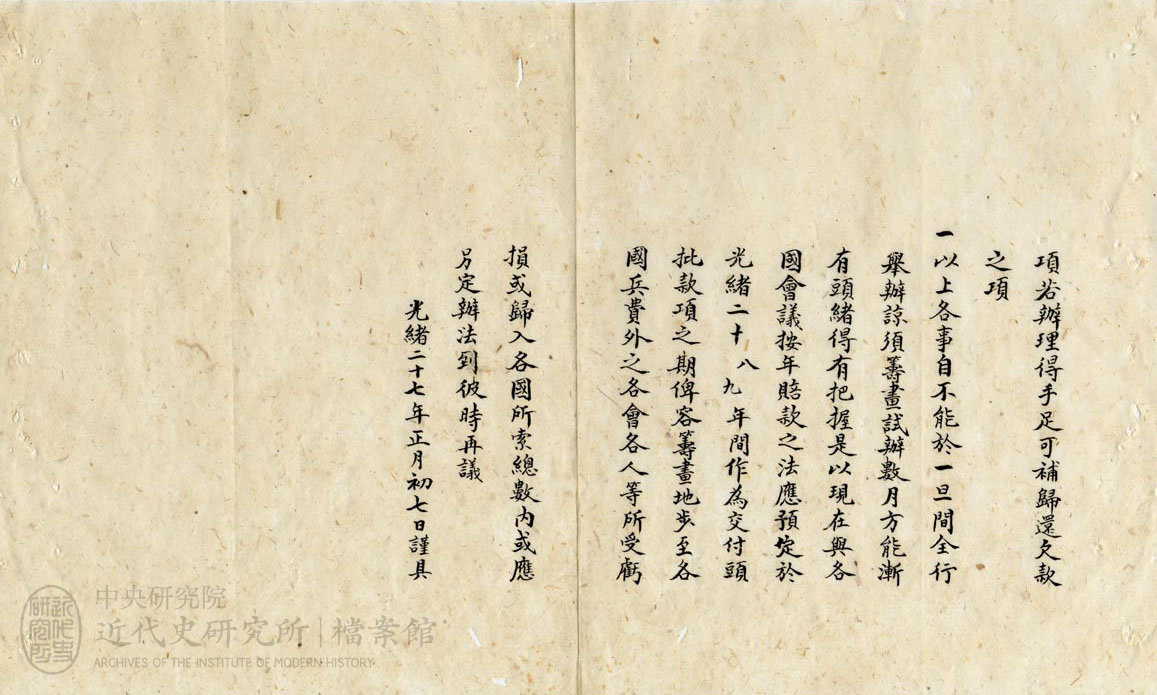 項若辦理得手足可補歸還欠款
之項
一以上各事自不能於一旦間全行
舉辦諒須籌畫試辦數月方能漸
有頭緒得有把握是以現在與各
國會議按年賠款之法應預定於
光緒二十八九年間作為交付頭
批款項之期俾容籌畫地步至各
國兵費外之各會各人等所受虧
損或歸入各國所索總數內或應
另定辦法到彼時再議
光緒二十七年正月初七日謹具
中央研究院
近代史研究所 檔案館
ARCHIVES OF THE INSTITUTE OF MODERN HISTORY